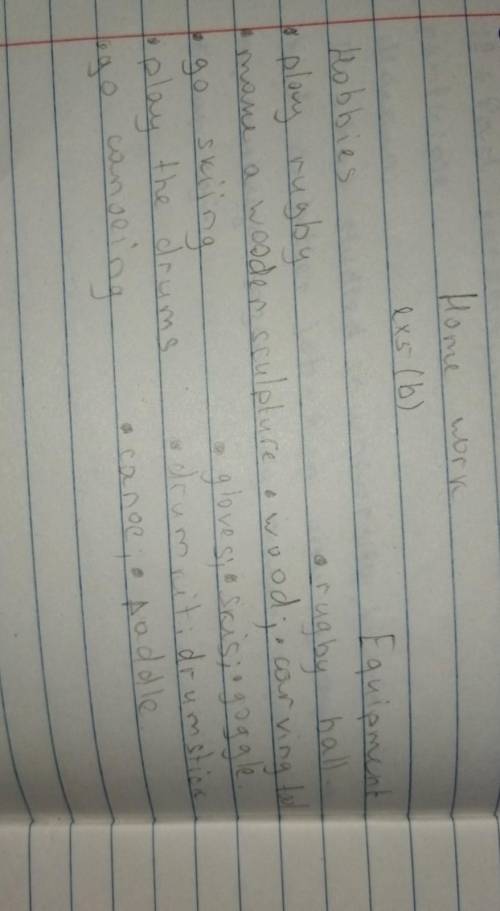 Home work
ex5(b)
Hobbies Equipment
• play rugby • rugby ball.
• make a wooden sculpture • wood; • carving
• go skiing • gloves; • skis; • goggle.
• play the drums • drum kit; drumstick
• go canoeing • canoe; • paddle